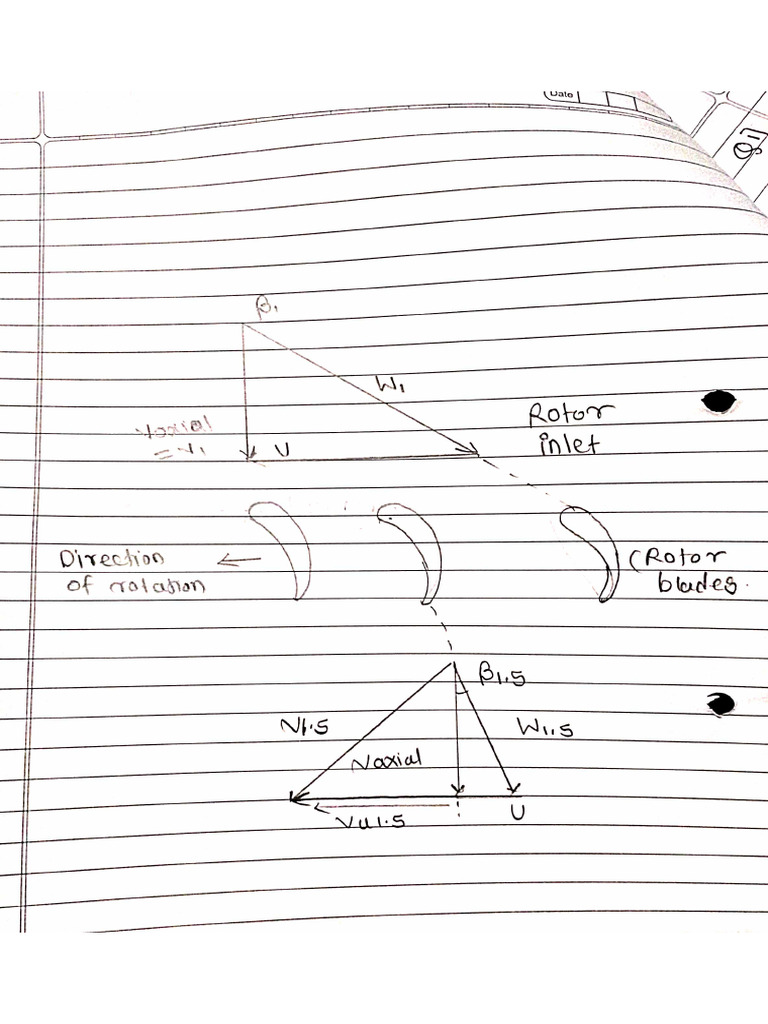 Date
Q1)
β1
W1
Vaxial
= V1
U
Rotor
inlet
Direction
of rotation
(Rotor
blades.
β1.5
V1.5
W1.5
Vaxial
Vu1.5
U